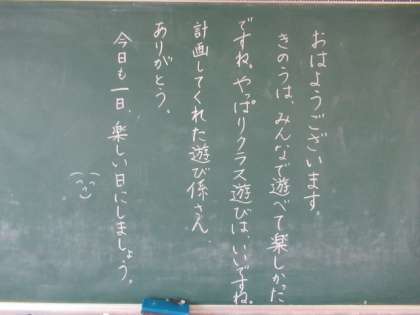 おはようございます。
きのうは、みんなで遊べて楽しかった
ですね。やっぱりクラス遊びは、いいですね。
計画してくれた遊び係さん、
ありがとう。
今日も一日、楽しい日にしましょう。